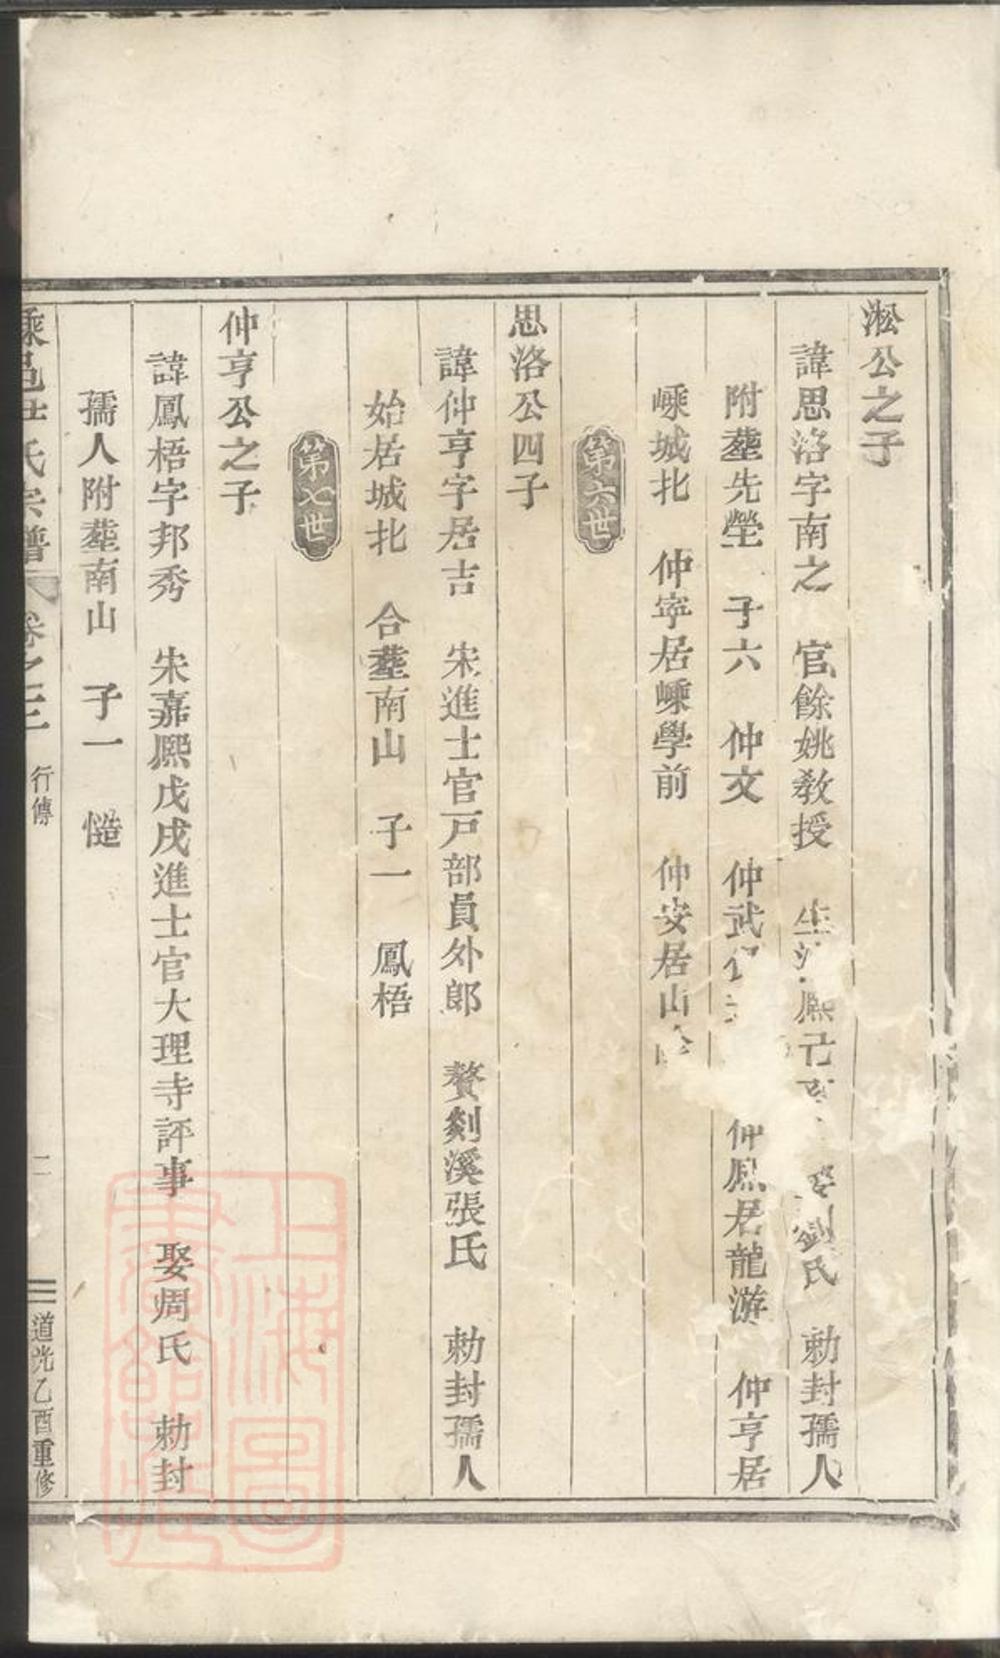 淞公之子
諱思洛字南之 官餘姚教授 生 熙 劉氏 勅封孺人
附塟先塋 子六 仲文 仲武 仲鳳居龍游 仲亨居
嵊城北 仲寧居嵊學前 仲安居山
第六世
思洛公四子
諱仲亨字居吉 宋進士官戸部員外郎 贅剡溪張氏 勅封孺人
始居城北 合塟南山 子一 鳳梧
第七世
仲亨公之子
諱鳳梧字邦秀 朱嘉熙戊戌進士官大理寺評事 娶周氏 勅封
孺人附塟南山 子一 慥
氏宗譜 卷之三 行傳 二 道光乙酉重修
上海圖書館藏